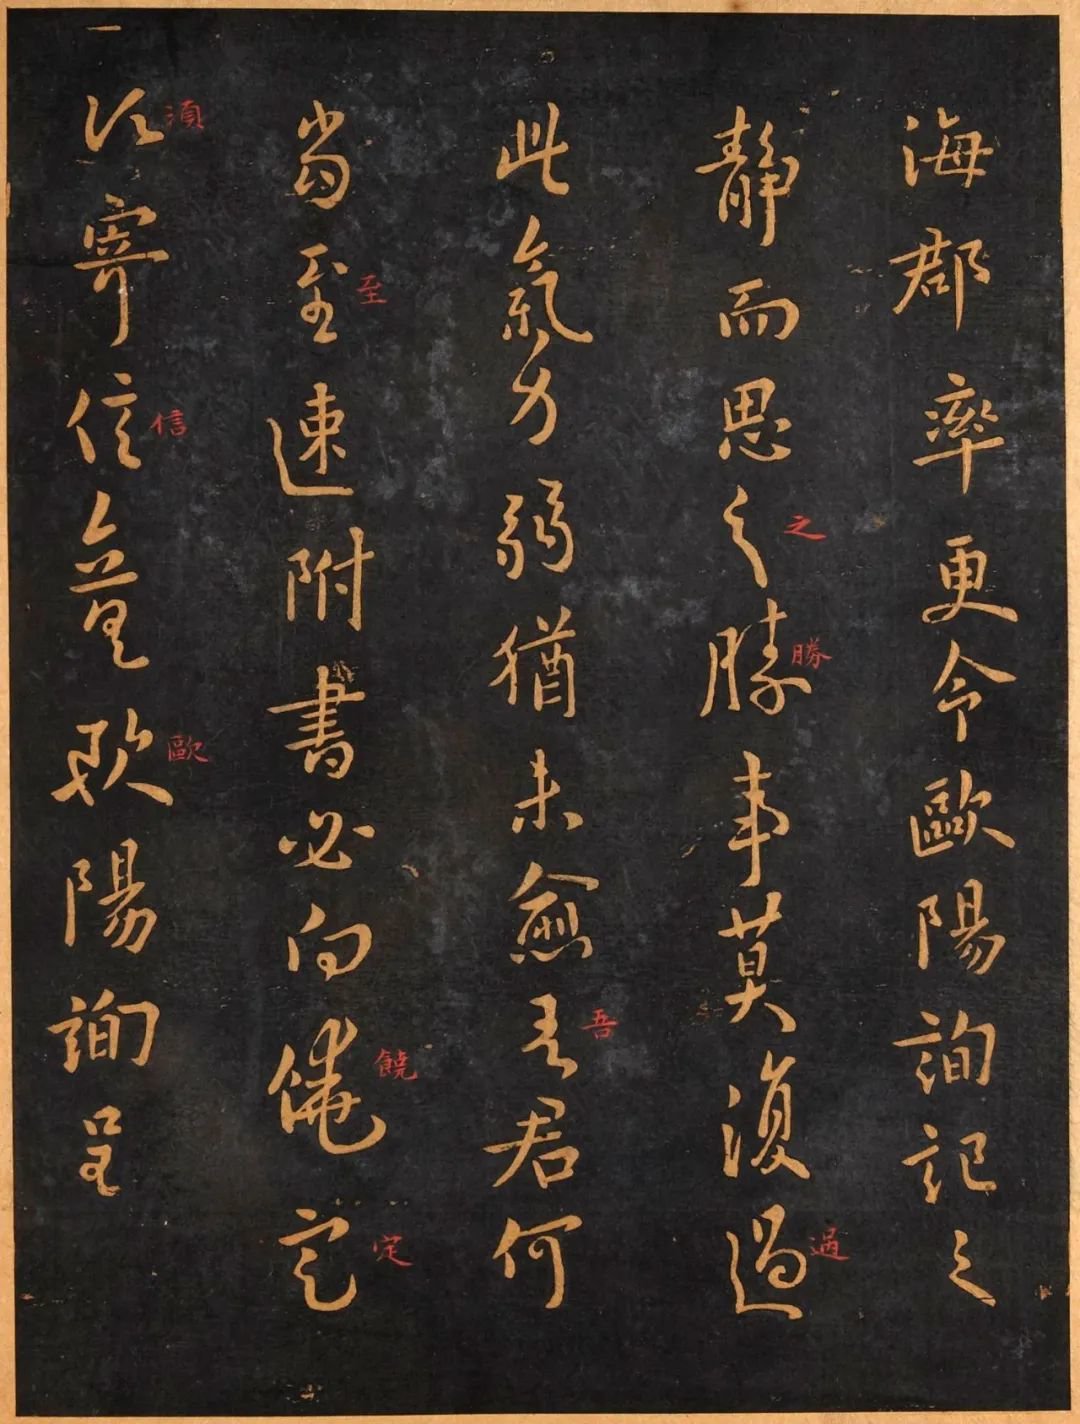 海郡率更令歐陽詢記之
靜而思之勝事莫復過
之
勝
過
此氣力弱猶未愈吾君何
吾
當至速附書必向饒定
至
饒
定
須寄信歐陽詢呈
須
信
歐